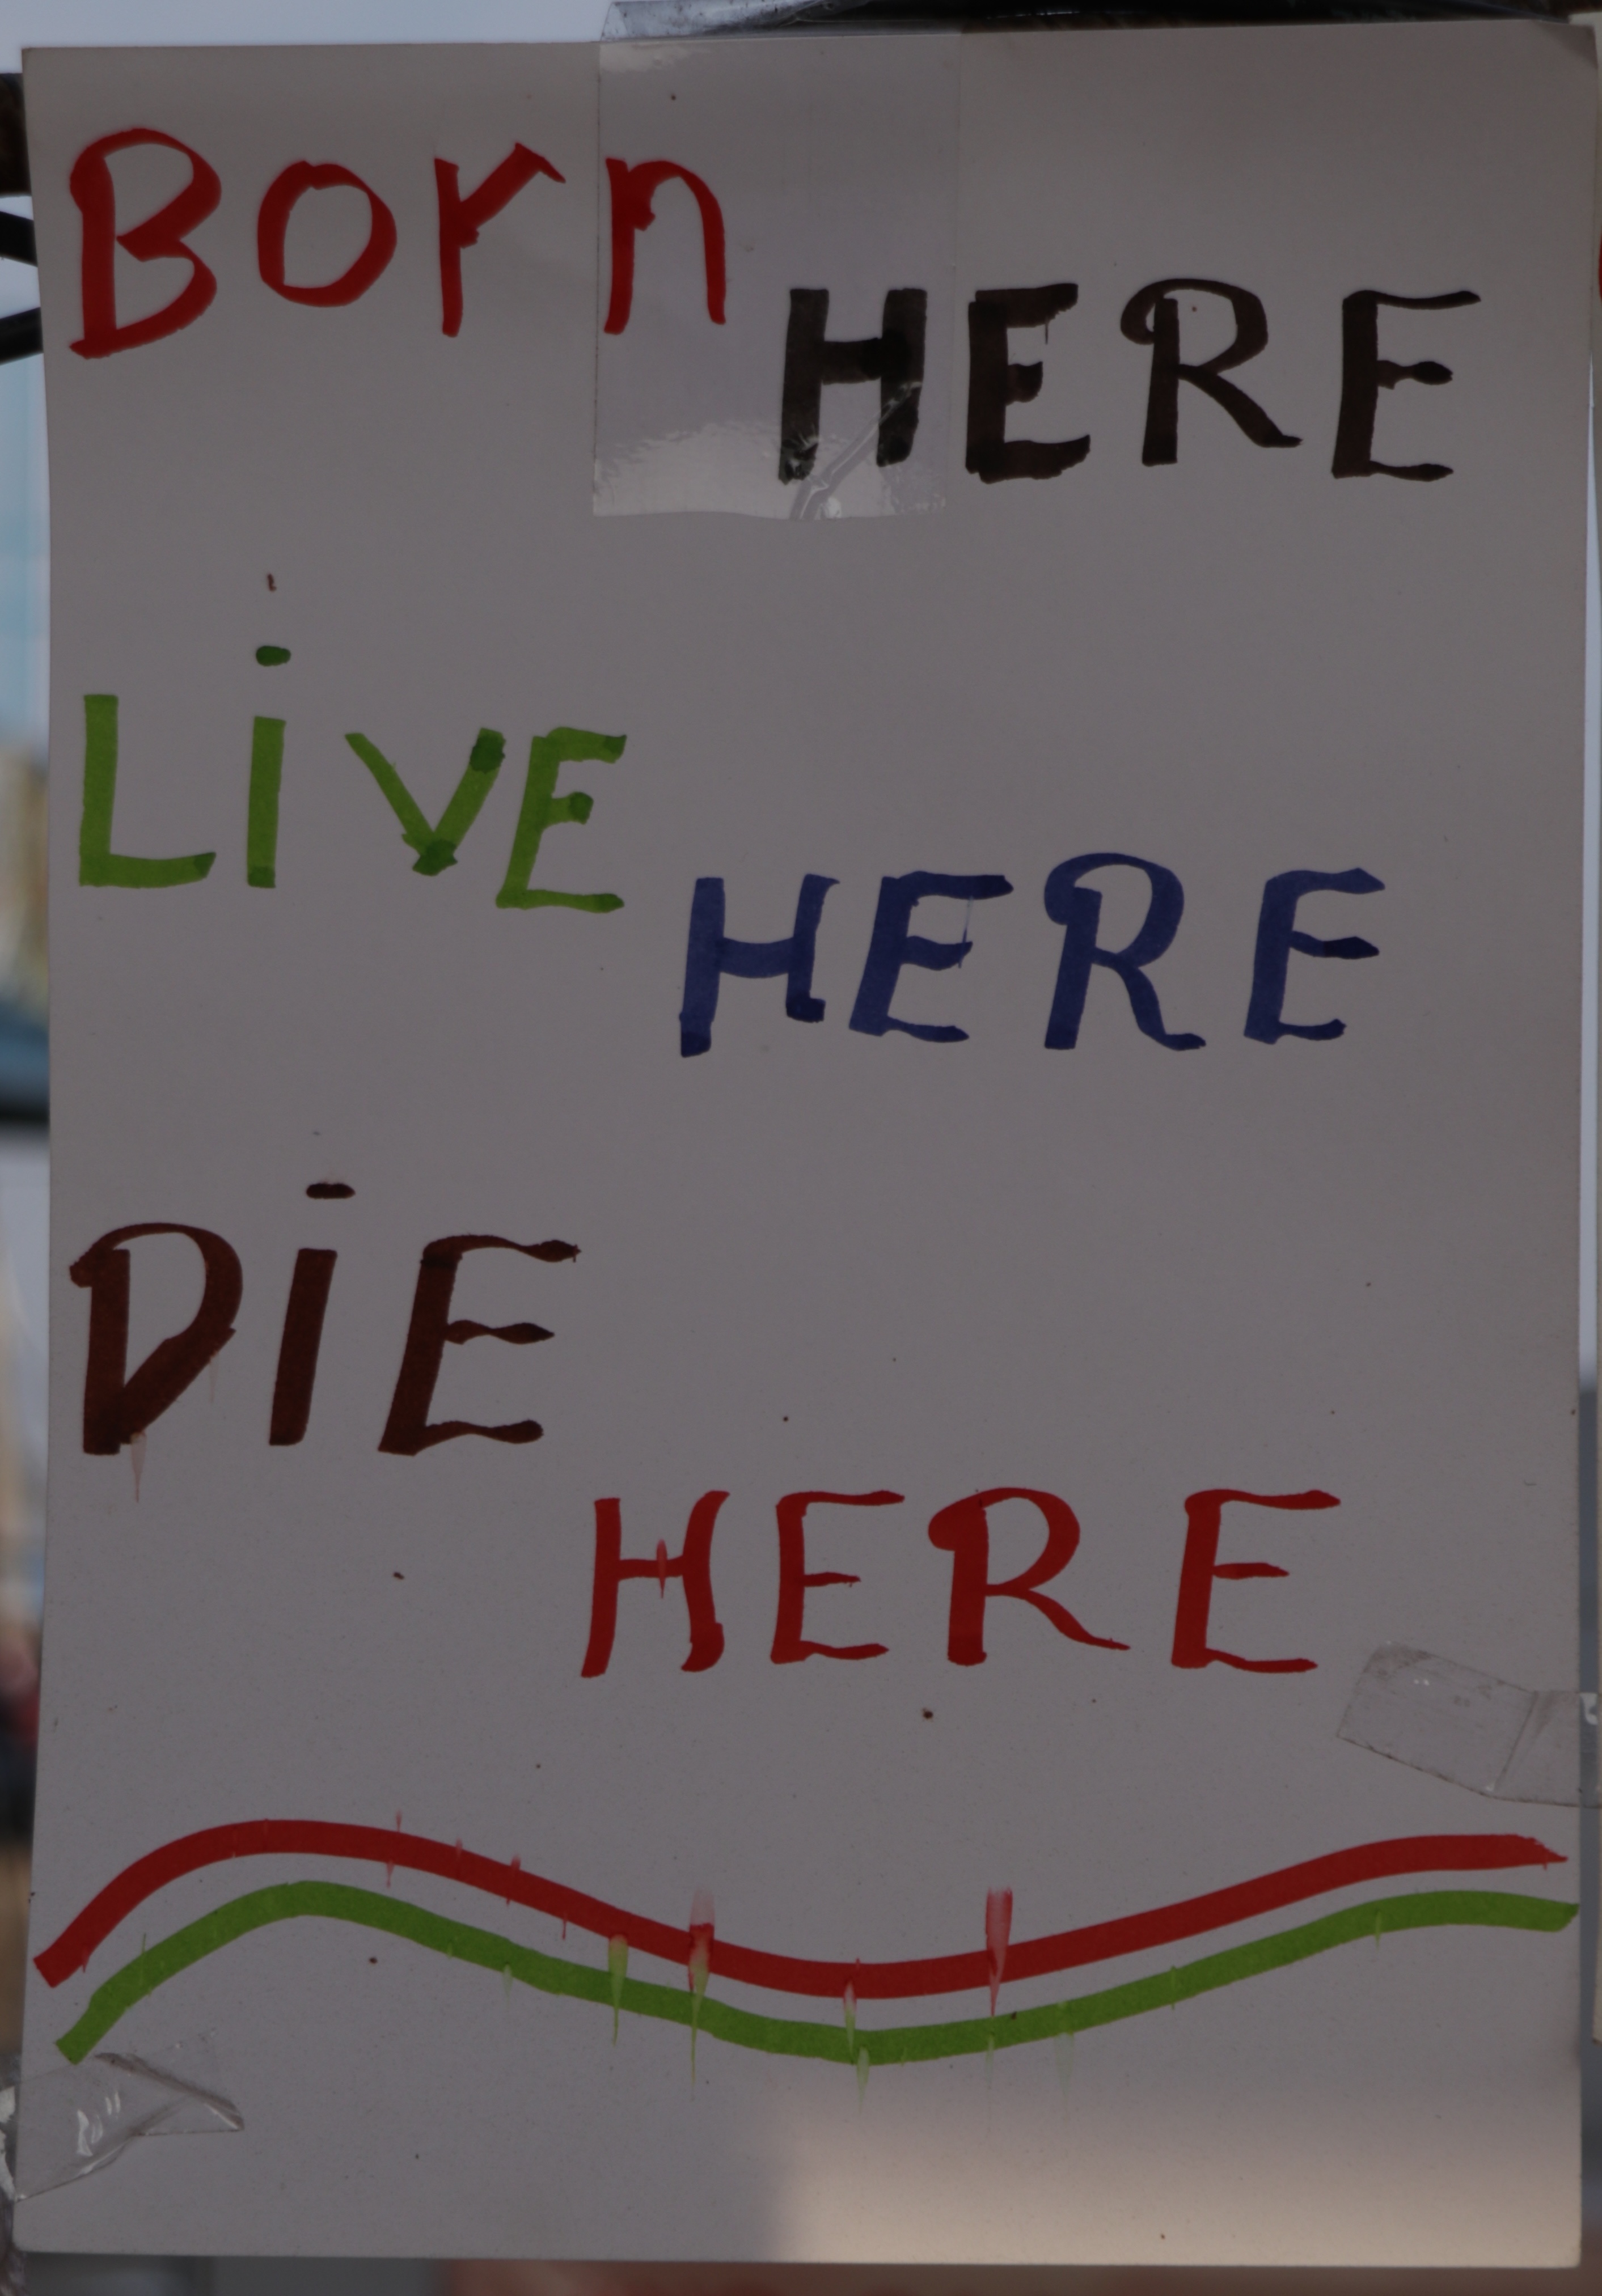 Born
HERE
LiVE
HERE
DiE
HERE